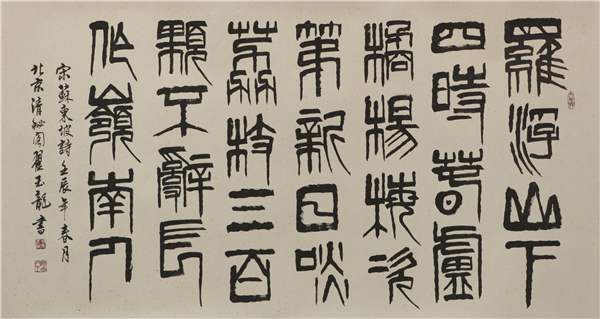 羅浮山下
四時春盧
橘楊梅次
第新日啖
荔枝三百
顆不辭長
作嶺南人
宋蘇東坡詩壬辰年春月
北京清秘阁翟玉龍書